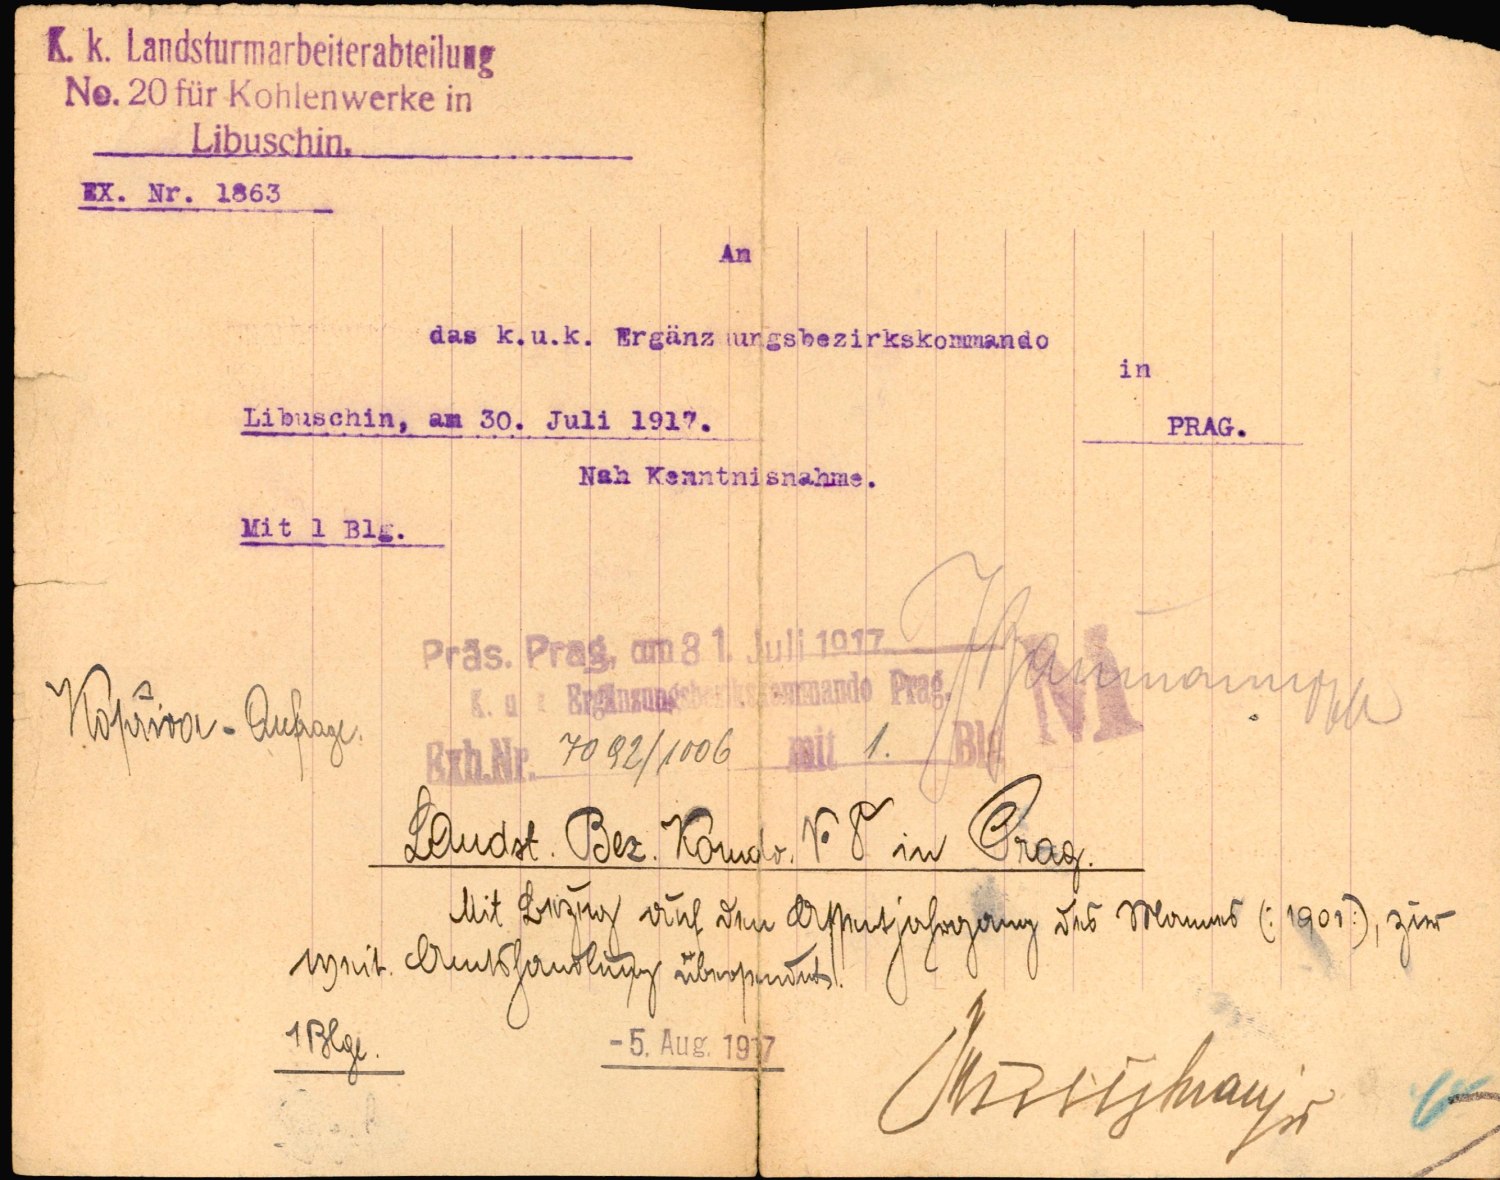 K. k. Landsturmarbeiterabteilung
No. 20 für Kohlenwerke in
Libuschin.
EX. Nr. 1863
An
das k.u.k. Ergänzungsbezirkskommando
in
Libuschin, am 30. Juli 1917.
PRAG.
Nah Kenntnisnahme.
Mit 1 Blg.
Präs. Prag, am 31. Juli 1917
K. u. k. Ergänzungsbezirkskommando Prag.
Exh.Nr. 7092/1006 mit 1. Blg
M
Kopřiva - Anfrage.
Landst. Bez. Komdo. No 8 in Prag.
Mit Bezug auf den Assentjahrgang des Mannes (: 1901 :), zur
weit. Amtshandlung übersendet.
1 Blge.
- 5. Aug. 1917